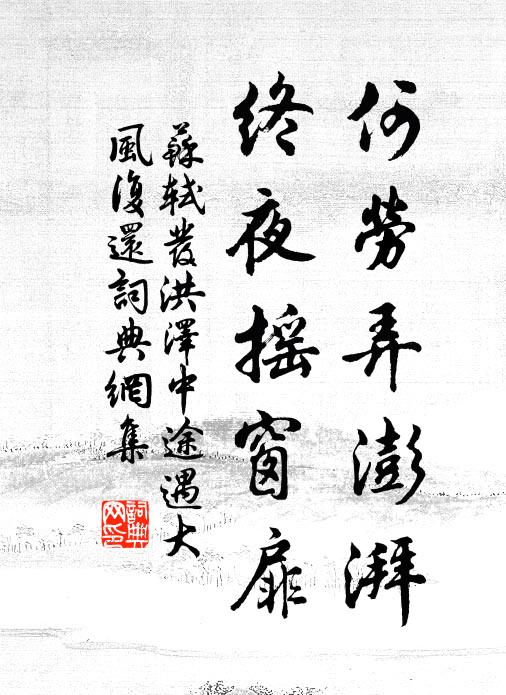 何勞弄澎湃
終夜搖窗扉
蘇軾發洪澤中途遇大
風復還詞典網集
詞典
网印